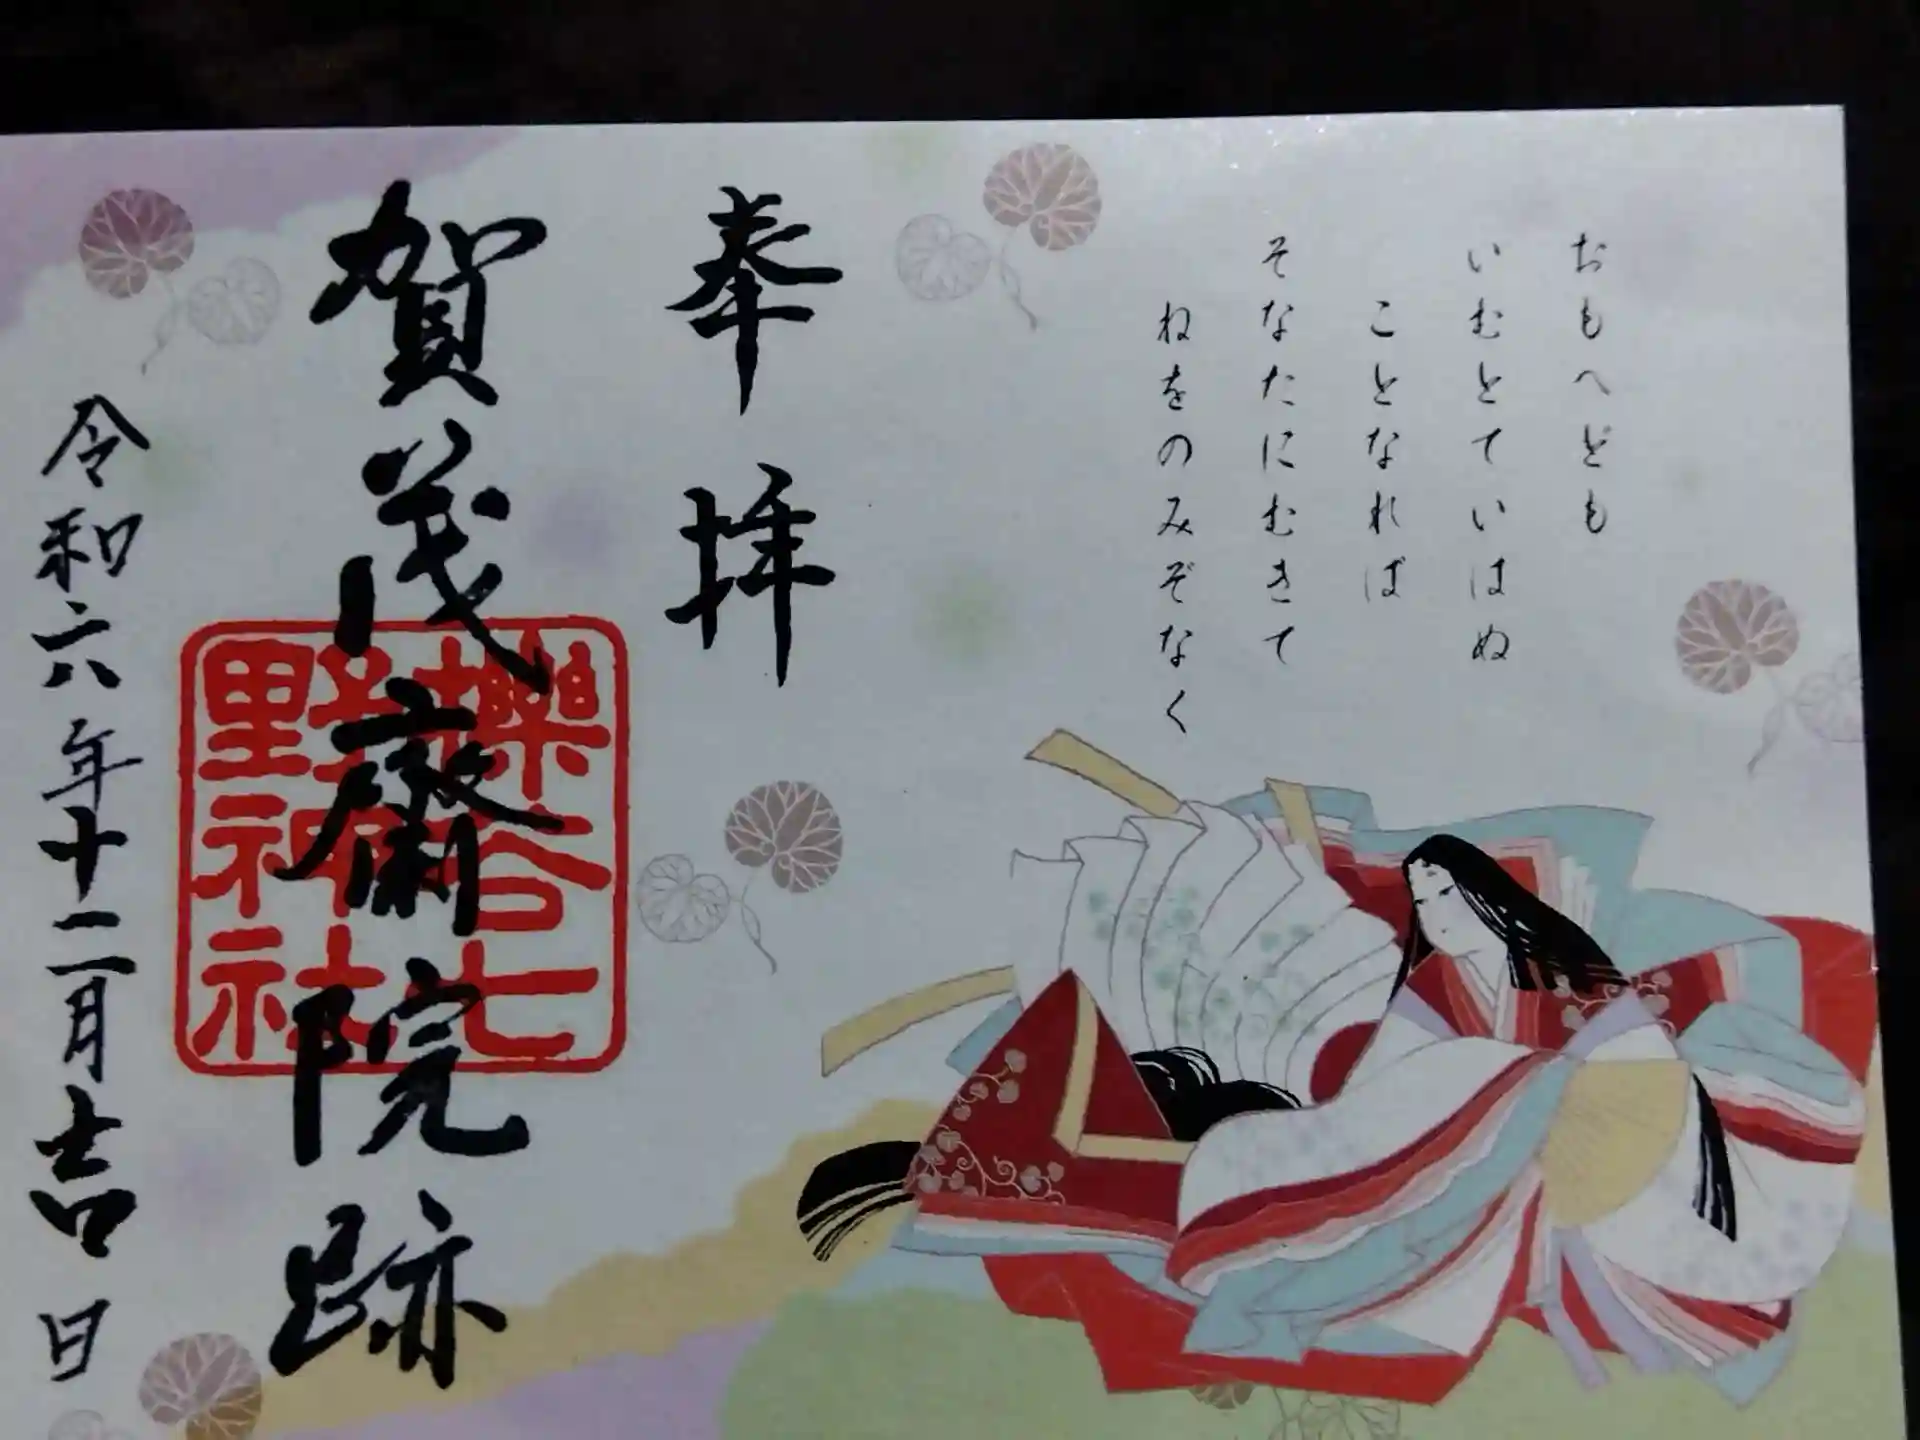 おもへども
いむとていはぬ
ことなれば
そなたにむきて
ねをのみぞなく
奉拝
賀茂齋院跡
櫟谷七
野神社
令和六年十二月吉日